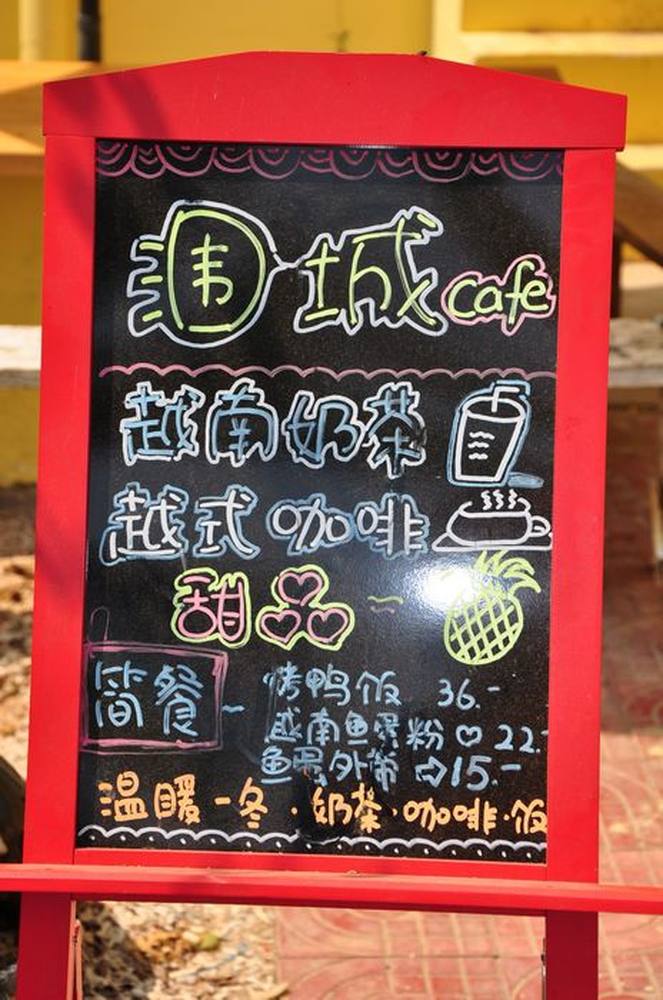 围城cafe
越南奶茶
越式咖啡
甜品~
简餐~ 烤鸭饭 36.-
越南鱼蛋粉 ♡ 22.-
鱼蛋外带 ⇨15.-
温暖一冬·奶茶·咖啡·饭